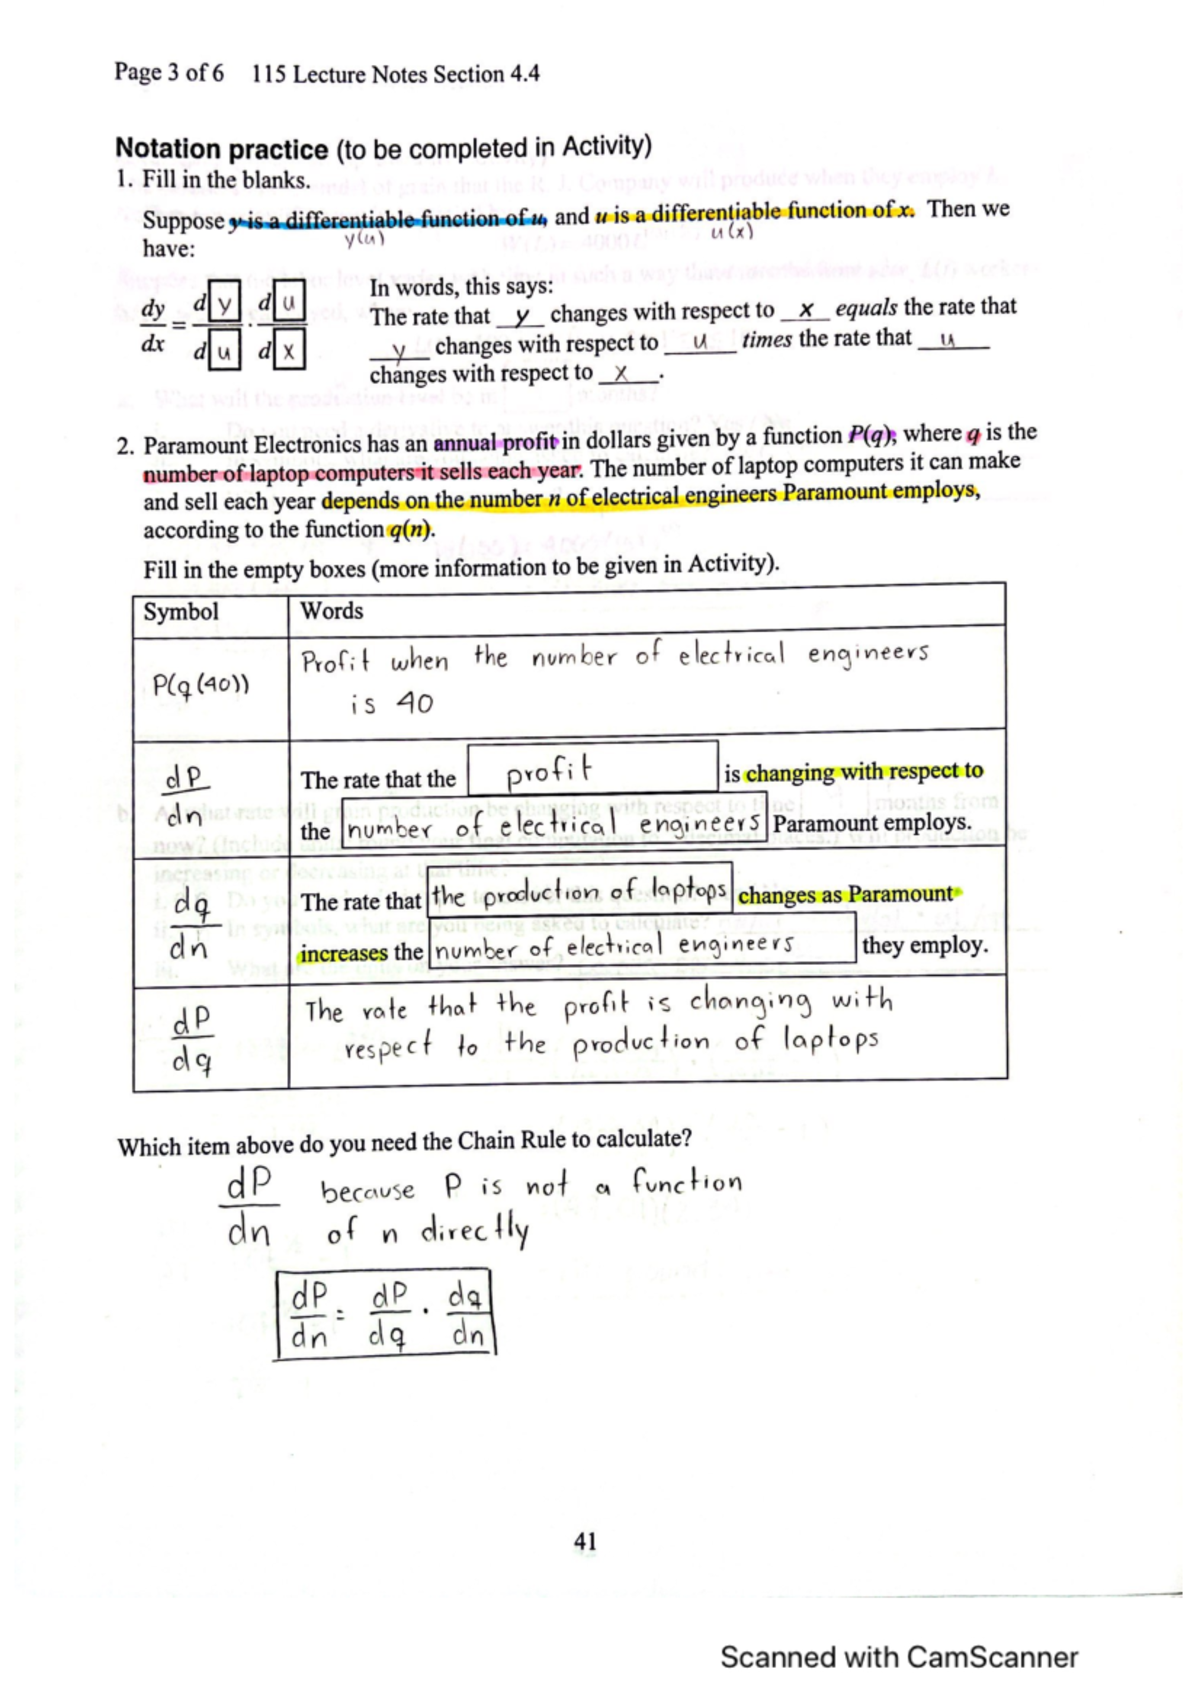 Page 3 of 6 115 Lecture Notes Section 4.4
Notation practice (to be completed in Activity)
1. Fill in the blanks.
Suppose y is a differentiable function of u, and u is a differentiable function of x. Then we
y(u) u(x)
have:
dy/dx = dy/du · du/dx
In words, this says:
The rate that y changes with respect to x equals the rate that
y changes with respect to u times the rate that u
changes with respect to x.
2. Paramount Electronics has an annual profit in dollars given by a function P(q), where q is the
number of laptop computers it sells each year. The number of laptop computers it can make
and sell each year depends on the number n of electrical engineers Paramount employs,
according to the function q(n).
Fill in the empty boxes (more information to be given in Activity).
Symbol Words
P(q(40)) Profit when the number of electrical engineers
is 40
dP/dn The rate that the profit is changing with respect to
the number of electrical engineers Paramount employs.
dq/dn The rate that the production of laptops changes as Paramount
increases the number of electrical engineers they employ.
dP/dq The rate that the profit is changing with
respect to the production of laptops
Which item above do you need the Chain Rule to calculate?
dP/dn because P is not a function
of n directly
dP/dn = dP/dq · dq/dn
41
Scanned with CamScanner